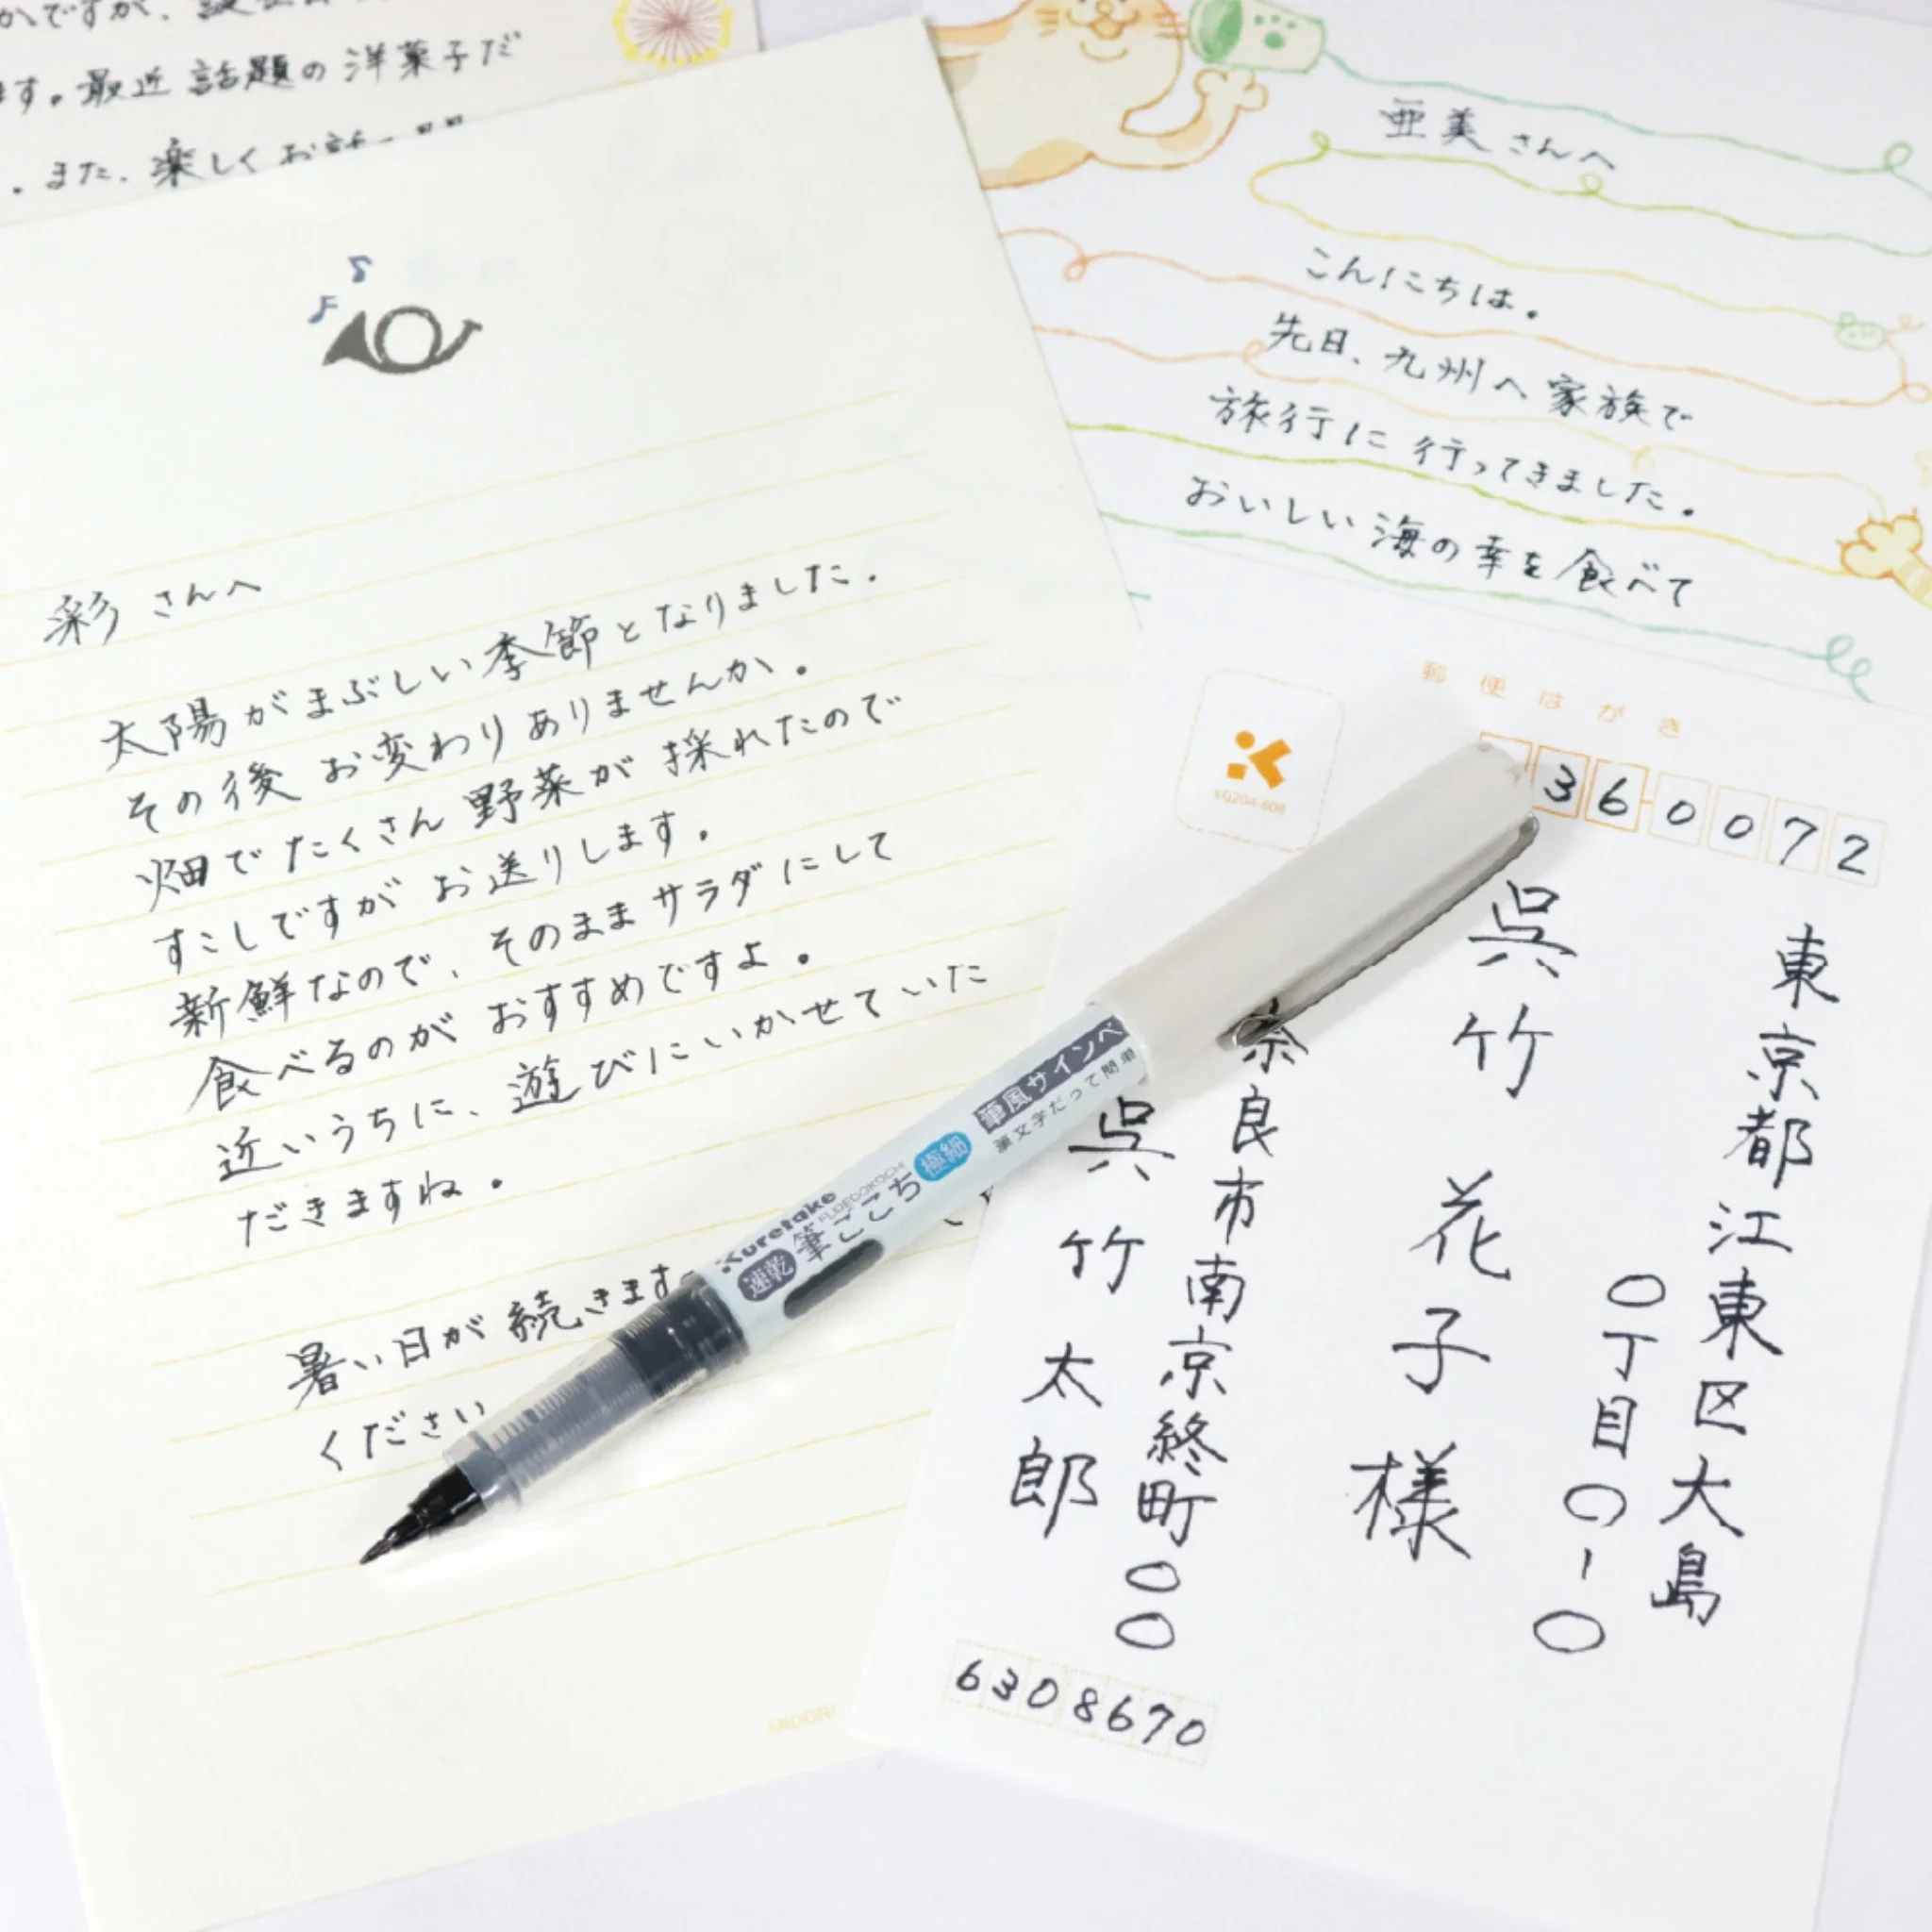 す。最近話題の洋菓子だ
。また、楽しくお話
彩さんへ
太陽がまぶしい季節となりました。
その後お変わりありませんか。
畑でたくさん野菜が採れたので
すこしですがお送りします。
新鮮なので、そのままサラダにして
食べるのがおすすめですよ。
近いうちに、遊びにいかせていた
だきますね。
暑い日が続きます
ください
MIDORI
亜美さんへ
こんにちは。
先日、九州へ家族で
旅行に行ってきました。
おいしい海の幸を食べて
郵便はがき
KG204-808
360072
東京都江東区大島
〇丁目〇-〇
呉竹花子様
奈良市南京終町〇〇
呉竹太郎
6308670
Kuretake
FUDEGOKOCHI
速乾 筆ごこち 極細
筆風サインペ
筆文字だって簡単